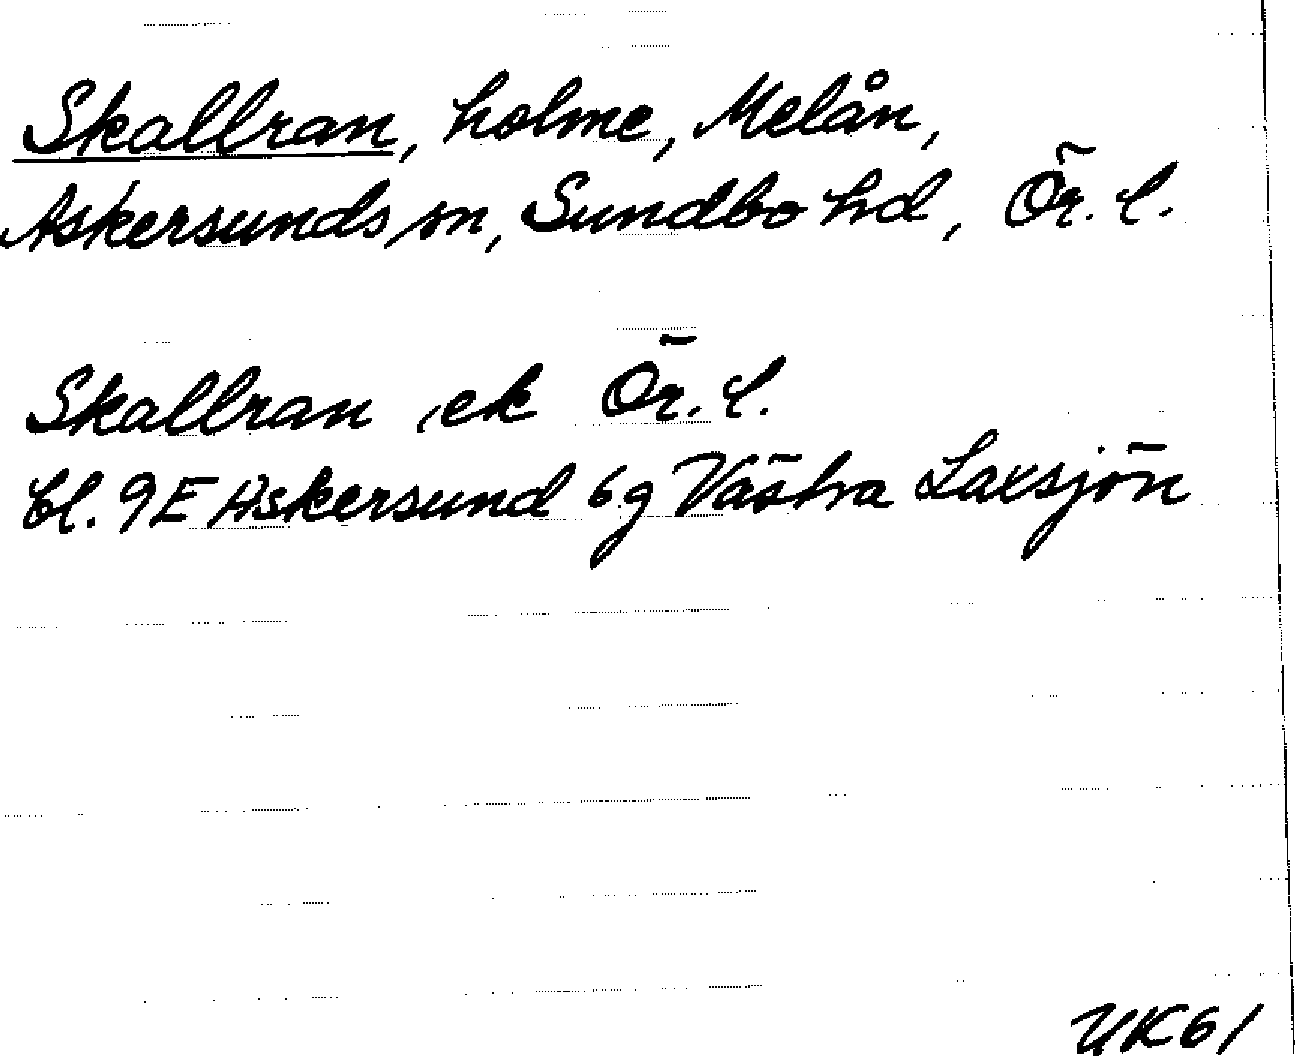 Skallran, holme, Melån,
Askersunds sn, Sundbo hd, Ör. l.
Skallran, ek Ör. l.
bl. 9E Askersund 6g Västra Laxsjön
UK61